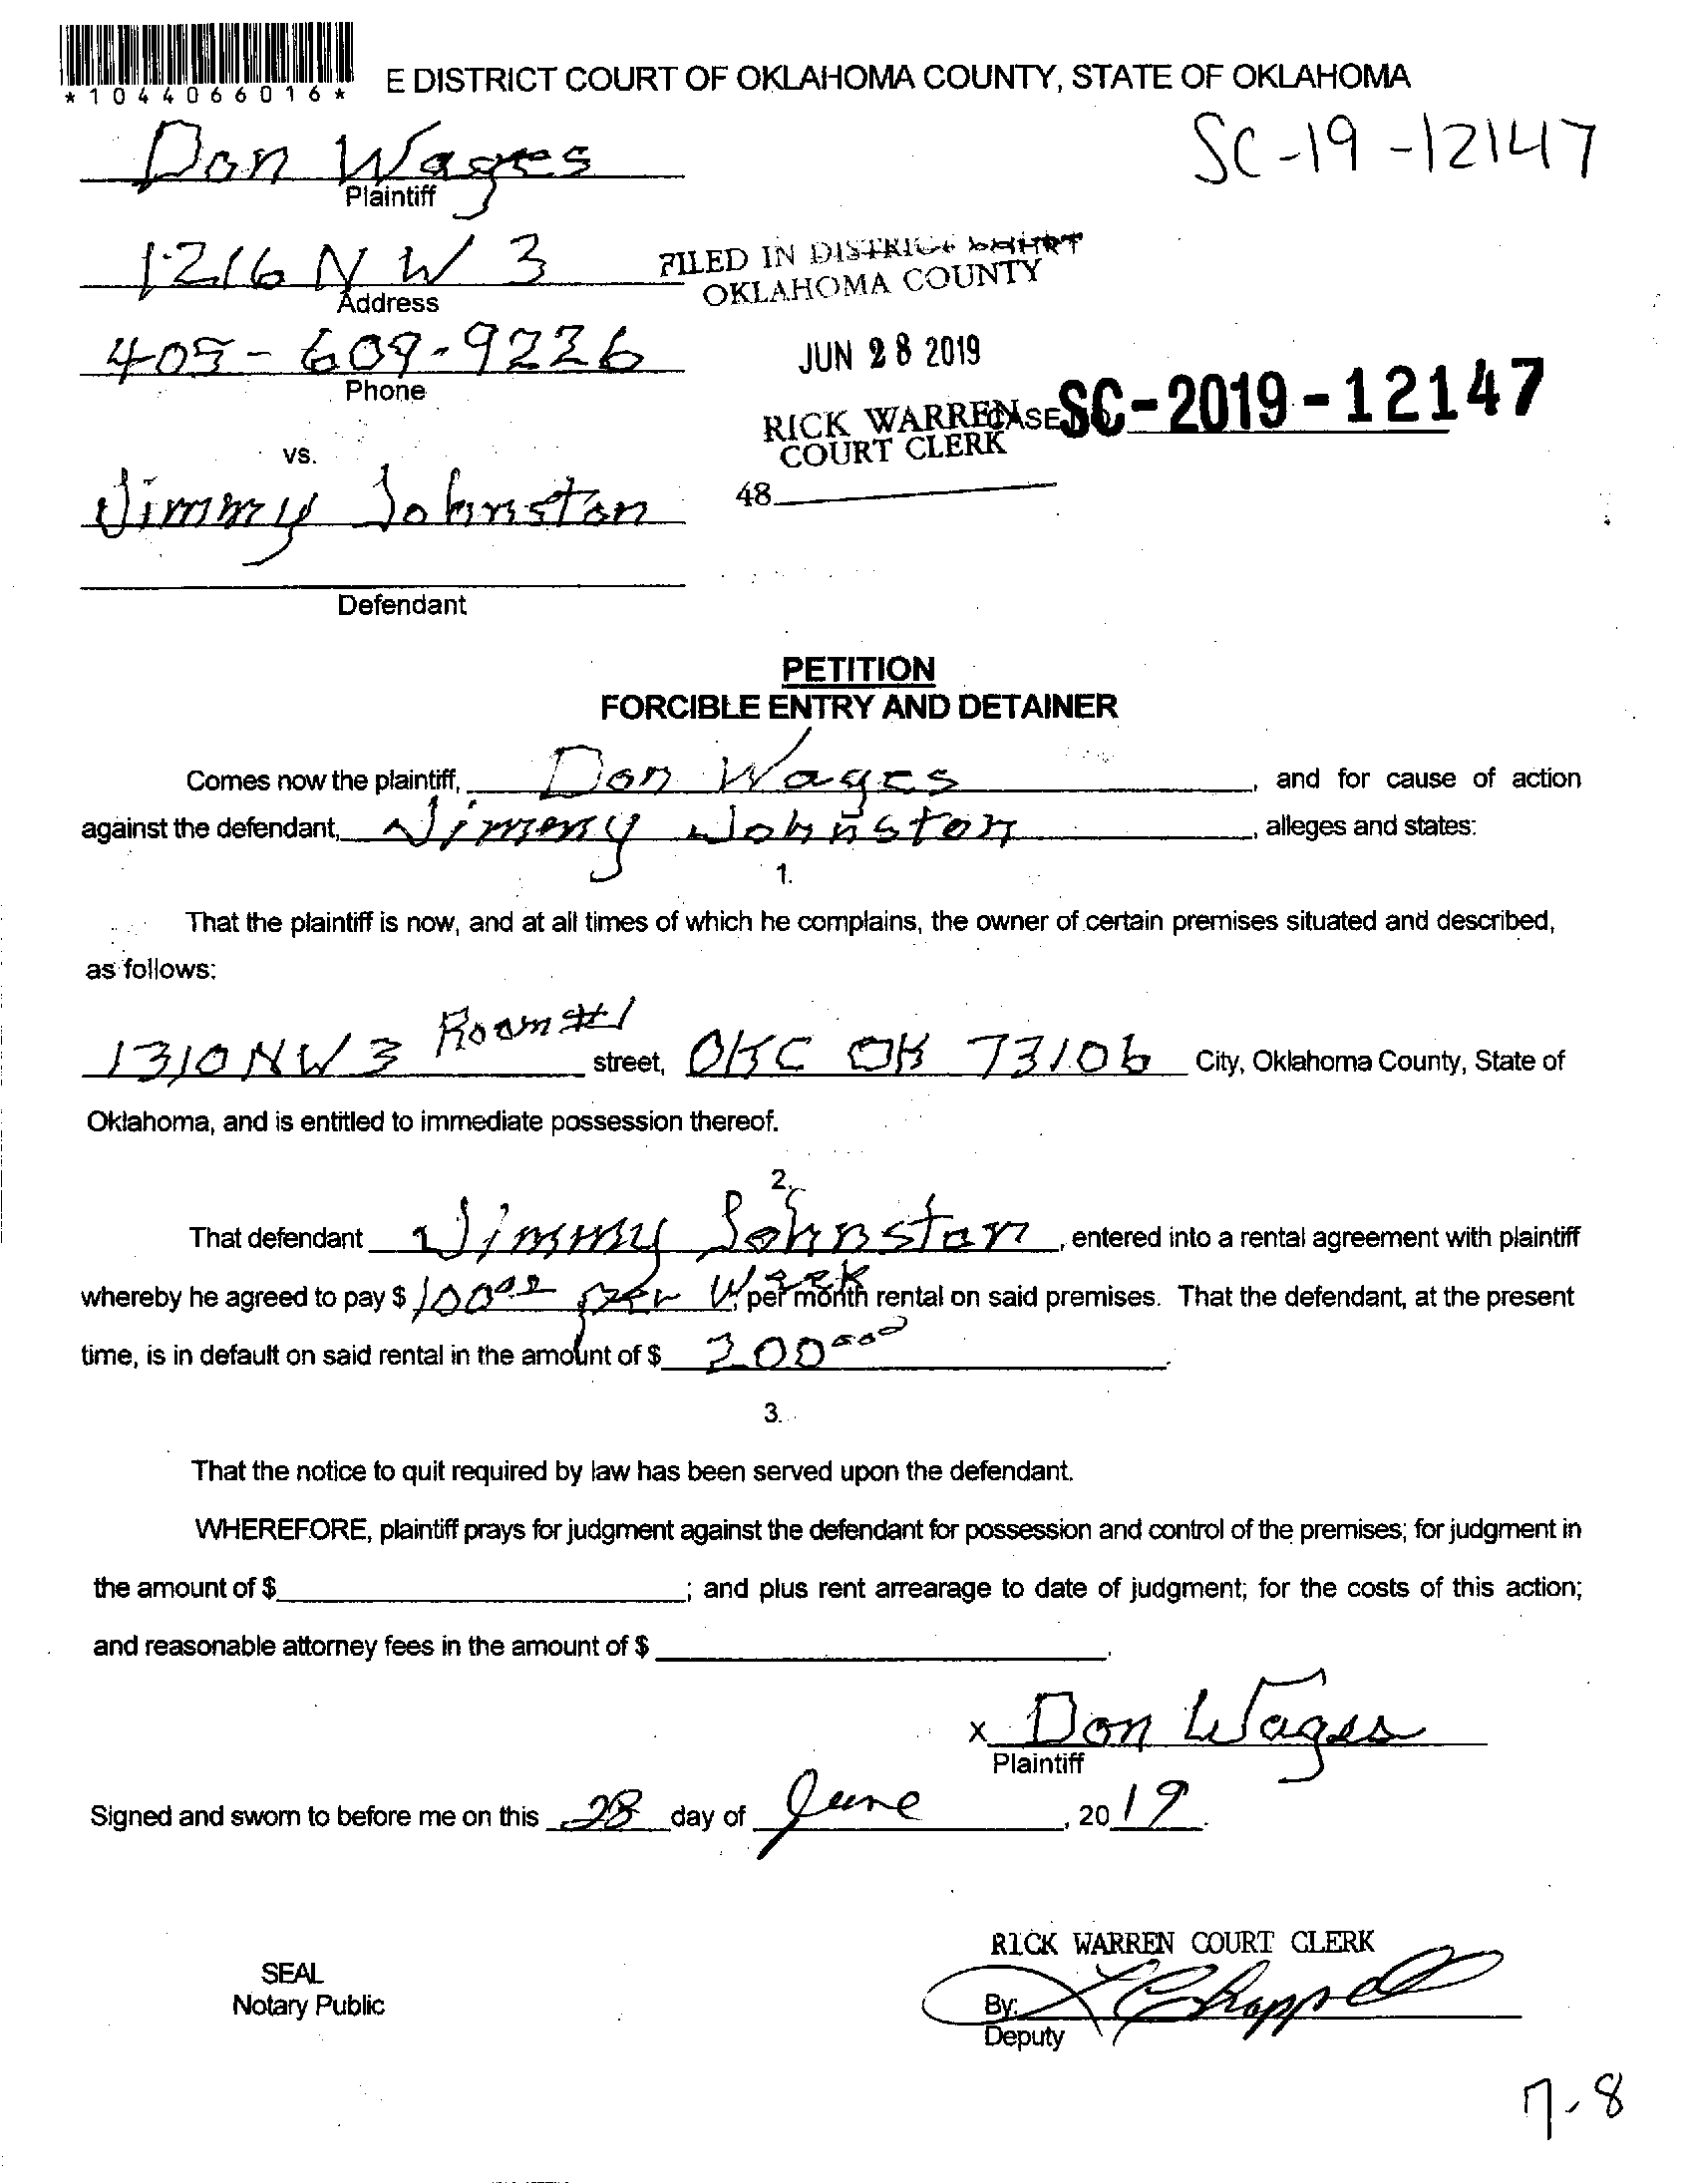 *1044066016*
E DISTRICT COURT OF OKLAHOMA COUNTY, STATE OF OKLAHOMA
SC-19-12147
Don Wages
Plaintiff
1216 NW 3
Address
FILED IN DISTRICT COURT
OKLAHOMA COUNTY
405-609-9226
Phone
JUN 28 2019
RICK WARREN
COURT CLERK
CASE SC-2019-12147
48
vs.
Jimmy Johnston
Defendant
PETITION
FORCIBLE ENTRY AND DETAINER
Comes now the plaintiff, Don Wages, and for cause of action
against the defendant, Jimmy Johnston, alleges and states:
1.
That the plaintiff is now, and at all times of which he complains, the owner of certain premises situated and described,
as follows:
1310 NW 3 Room #1 street, OKC OK 73106 City, Oklahoma County, State of
Oklahoma, and is entitled to immediate possession thereof.
2.
That defendant Jimmy Johnston, entered into a rental agreement with plaintiff
whereby he agreed to pay $ 100.00 per week, per month rental on said premises. That the defendant, at the present
time, is in default on said rental in the amount of $ 200
3.
That the notice to quit required by law has been served upon the defendant.
WHEREFORE, plaintiff prays for judgment against the defendant for possession and control of the premises; for judgment in
the amount of $ ; and plus rent arrearage to date of judgment; for the costs of this action;
and reasonable attorney fees in the amount of $ .
x Don Wages
Plaintiff
Signed and sworn to before me on this 28 day of June, 2019.
RICK WARREN COURT CLERK
SEAL
Notary Public
By: L Chappell
Deputy
7-8